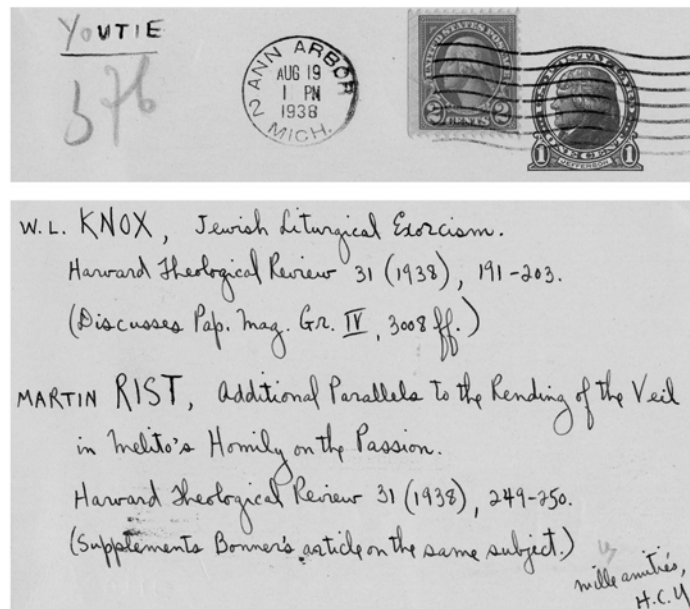 YOUTIE
376
ANN ARBOR
AUG 19
1 PM
1938
2 MICH.
UNITED STATES POSTAGE
2 CENTS 2
1 JEFFERSON 1
W. L. KNOX, Jewish Liturgical Exorcism.
Harvard Theological Review 31 (1938), 191-203.
(Discusses Pap. Mag. Gr. IV, 3008 ff.)
MARTIN RIST, Additional Parallels to the Rending of the Veil
in Melito's Homily on the Passion.
Harvard Theological Review 31 (1938), 249-250.
(Supplements Bonner's article on the same subject.)
mille amitiés,
H.C.Y